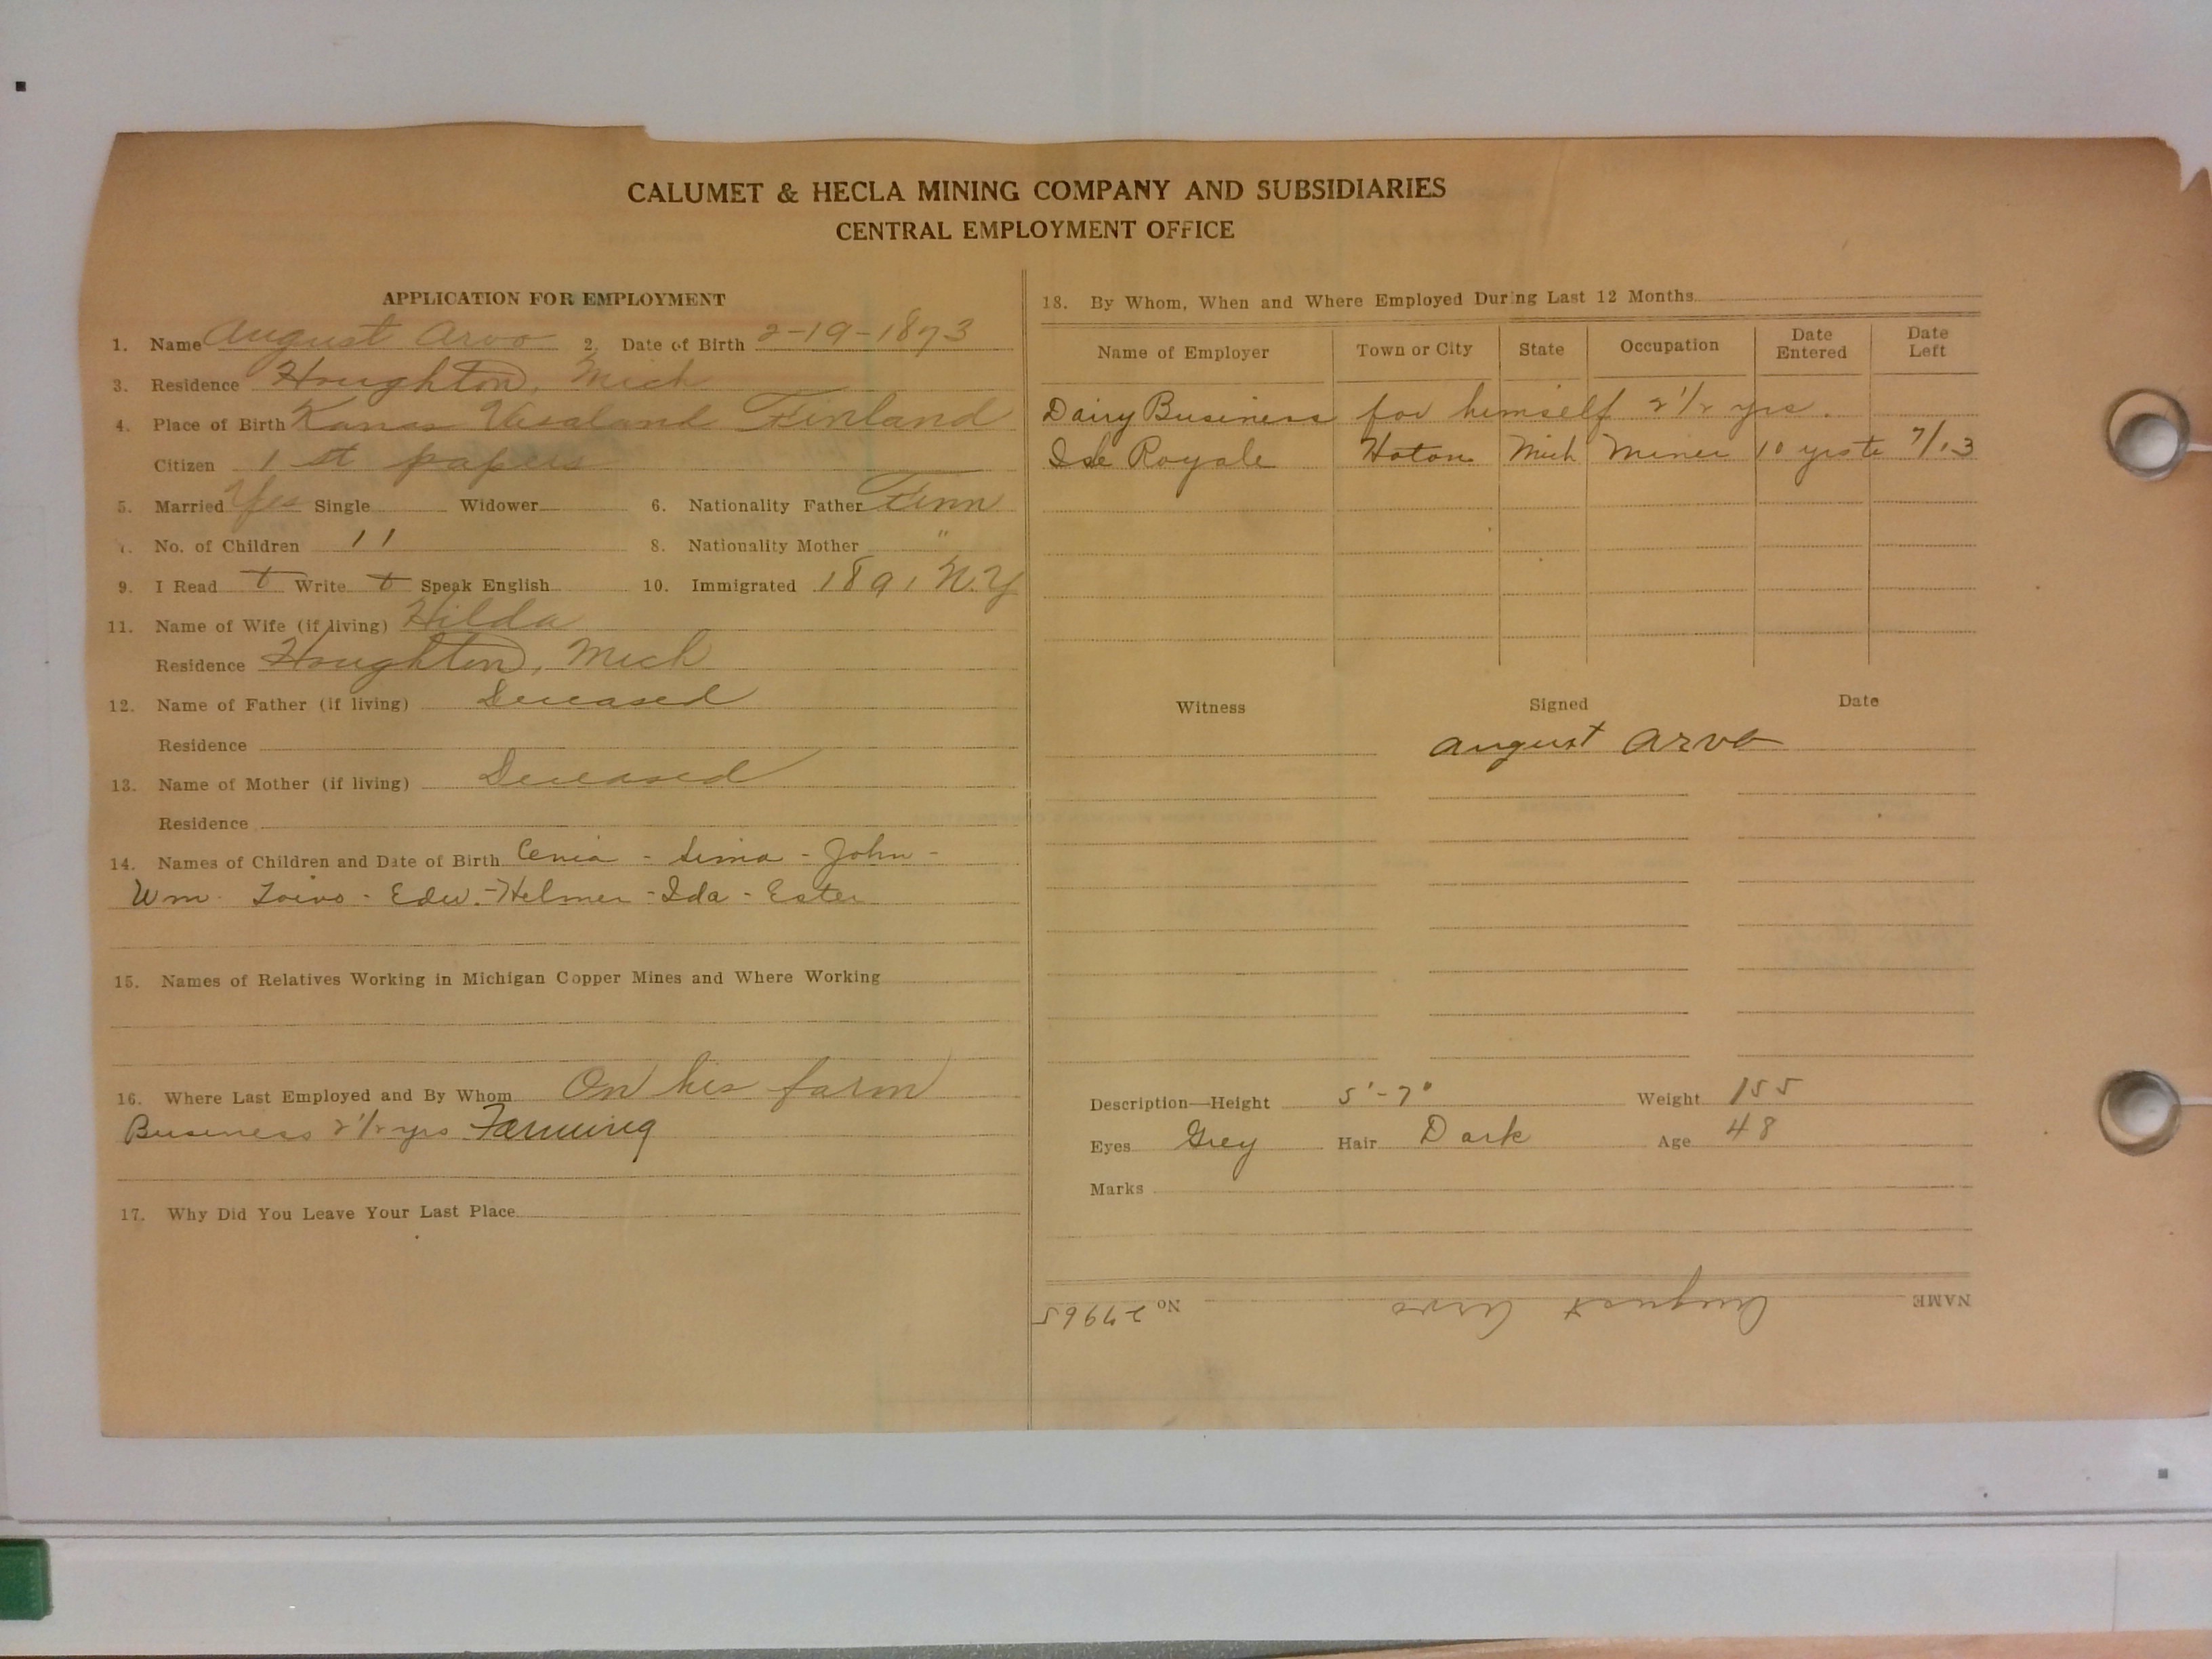 CALUMET & HECLA MINING COMPANY AND SUBSIDIARIES
CENTRAL EMPLOYMENT OFFICE
APPLICATION FOR EMPLOYMENT
1. Name August Arvo 2. Date of Birth 2-19-1873
3. Residence Houghton, Mich
4. Place of Birth Vasaland Finland
Citizen 1st papers
5. Married Yes Single Widower 6. Nationality Father Finn
7. No. of Children 11 8. Nationality Mother "
9. I Read Write Speak English 10. Immigrated 1891 N.Y
11. Name of Wife (if living) Hilda
Residence Houghton, Mich
12. Name of Father (if living) Deceased
Residence
13. Name of Mother (if living) Deceased
Residence
14. Names of Children and Date of Birth - - John -
Wm. Toivo - Edw. - Helmer - Ida - Ester
15. Names of Relatives Working in Michigan Copper Mines and Where Working
16. Where Last Employed and By Whom On his farm
Business 2 1/2 yrs Farming
17. Why Did You Leave Your Last Place
18. By Whom, When and Where Employed During Last 12 Months
Name of Employer Town or City State Occupation Date Entered Date Left
Dairy Business for himself 2 1/2 yrs.
Isle Royale Hoton Mich Miner 10 yrs to 7/13
Witness Signed Date
August Arvo
Description—Height 5'-7" Weight 155
Eyes Grey Hair Dark Age 48
Marks
NAME August Arvo No 27965